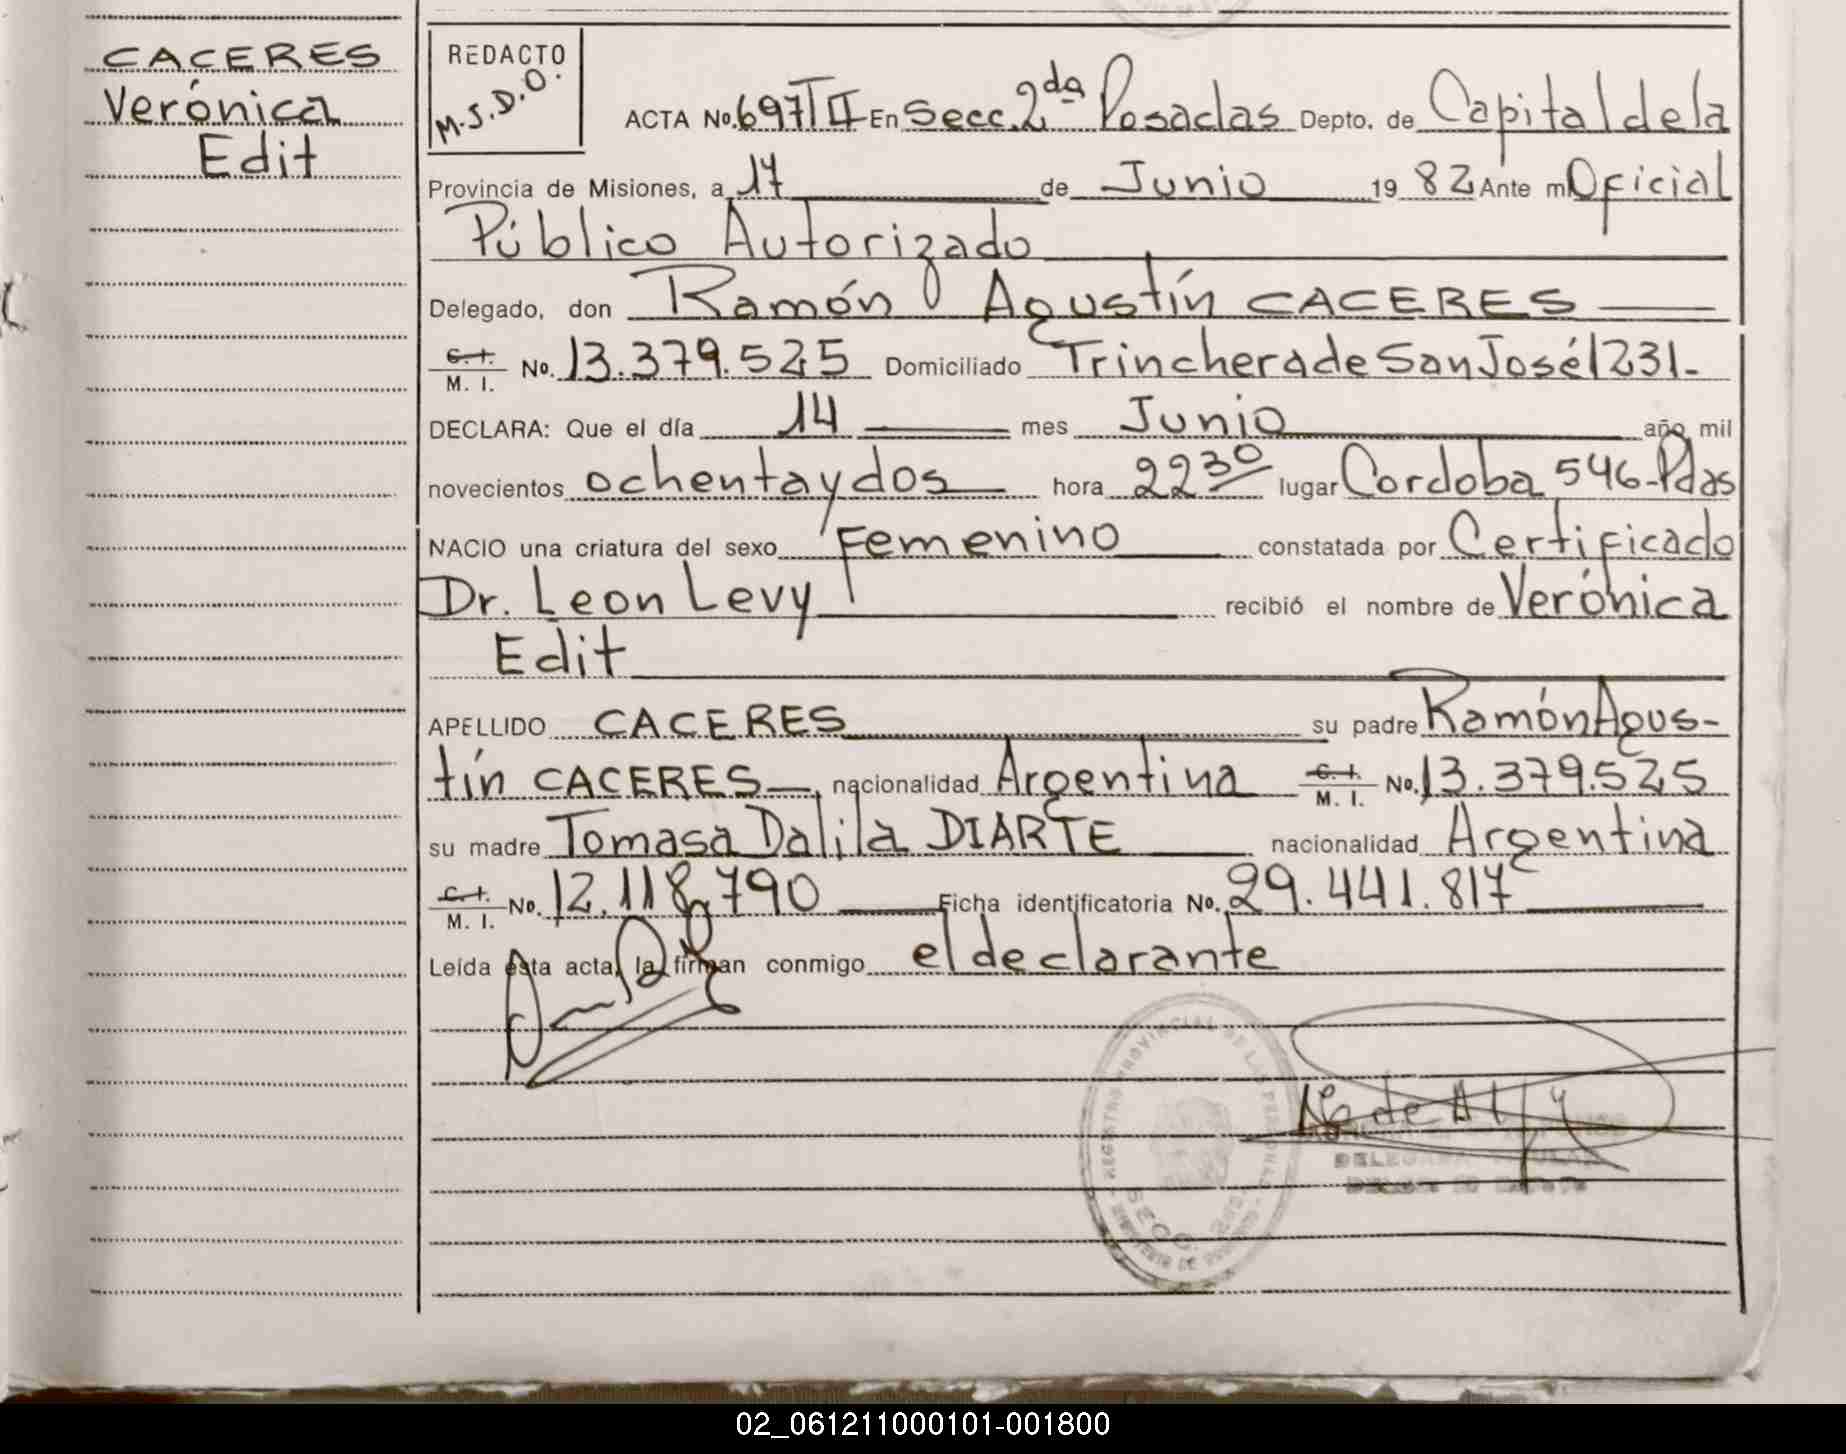 CACERES
Verónica
Edit
REDACTO
M.S.D.O.
ACTA No. 697 T II En Secc. 2da Posadas Depto. de Capital de la
Provincia de Misiones, a 17 de Junio 19 82 Ante mi Oficial
Público Autorizado
Delegado, don Ramón Agustín CACERES
C. I. M. I. No. 13.379.525 Domiciliado Trinchera de San José 1231-
DECLARA: Que el día 14 mes Junio año mil
novecientos ochenta y dos hora 22 30 lugar Cordoba 546-Pdas
NACIO una criatura del sexo Femenino constatada por Certificado
Dr. Leon Levy recibió el nombre de Verónica
Edit
APELLIDO CACERES su padre Ramón Agus-
tín CACERES nacionalidad Argentina C. I. M. I. No. 13.379.525
su madre Tomasa Dalila DIARTE nacionalidad Argentina
C. I. M. I. No. 12.118.790 Ficha identificatoria No. 29.441.817
Leída esta acta, la firman conmigo el declarante
REGISTRO PROVINCIAL DE LAS PERSONAS
SECC. 2da
DELEGADA TITULAR
02_061211000101-001800